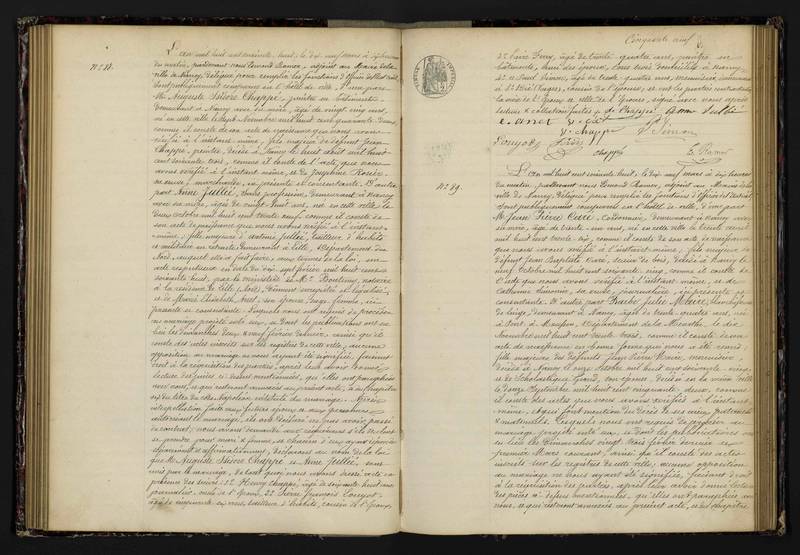 N° 88.
L'an mil huit cent soixante huit, le dix neuf mars à dix heures
du matin, pardevant nous Edmond Ramor, adjoint au Maire de la
ville de Nancy, délégué pour remplir les fonctions d'officier de l'état civil,
sont publiquement comparus en l'hôtel de ville, d'une part
Mr Auguste Isidore Chappé, peintre en bâtiments,
demeurant à Nancy avec sa mère, âgé de vingt sept ans,
né en cette ville le sept Novembre mil huit cent quarante,
comme il conste de son acte de naissance que nous avons
vérifié à l'instant même, fils majeur de défunt Jean
Chappé, peintre, décédé à Nancy le huit août mil huit
cent soixante trois, comme il conste de l'acte, que nous
avons vérifié à l'instant même, et de Joséphine Rosier
sa veuve, ici présente et consentante. D'autre
part Anne Jullié, sans profession, demeurant à Nancy
avec sa mère, âgée de vingt huit ans, née en cette ville le
Octobre mil huit cent trente neuf, comme il conste de
son acte de naissance que nous avons vérifié à l'instant
même, fille majeure d'Antoine Jullié, tailleur d'habits
et militaire en retraite, demeurant à Lille, Département du
Nord, auquel elle a fait faire, aux termes de la loi, un
acte respectueux en date du six février mil huit cent
soixante huit, par le ministère de Me Boutemy, notaire
à la résidence de Lille (Nord), dûment enregistré et légalisé,
et de Marie Elisabeth Anet, son épouse, sage femme, ici
présente et consentante. Lesquels nous ont requis de procéder
au mariage projeté entre eux, et dont les publications ont eu
lieu les dimanches deux et neuf février dernier, ainsi qu'il
conste des actes inscrits sur les registres de cette ville, aucune
opposition au mariage ne nous ayant été signifiée, faisant
droit à la réquisition des parties, après leur avoir donné
lecture des pièces ci dessus mentionnées, qu'elles ont paraphées
avec nous, et qui resteront annexées au présent acte, et du chapitre
six du titre du Code Napoléon intitulé du mariage. Après
interpellation faite aux futurs époux et aux personnes
autorisant le mariage, ils ont déclaré ne pas avoir passé
de contrat; nous avons demandé aux comparants s'ils veulent
se prendre pour mari et femme, et chacun d'eux ayant répondu
séparément et affirmativement, déclarons au nom de la loi
que Mr Auguste Isidore Chappé et Anne Jullié, sont
unis par le mariage. De tout quoi nous avons dressé acte en
présence des sieurs: 1° Henry Chappé, âgé de soixante huit ans,
journalier, oncle de l'époux, 2° Pierre François Louyot,
âgé de cinquante six ans, tailleur d'habits, cousin de l'époux,
Cinquante neuf
3° Isidore, âgé de trente quatre ans, peintre en
bâtiments, ami des époux, tous trois domiciliés à Nancy,
4° et Simon, âgé de trente quatre ans, menuisier, demeurant
à St Dié (Vosges), cousin de l'épouse, et ont les parties contractantes,
la mère de l'époux et celle de l'épouse, signé avec nous après
lecture et collation faites. A. Chappé anne Jullié
e. anet
h. chappé Simon
Louyot
chappé E. Ramor
N° 89.
L'an mil huit cent soixante huit, le dix neuf mars à dix heures
du matin, pardevant nous Edmond Ramor, adjoint au Maire de la
ville de Nancy, délégué pour remplir les fonctions d'officier de l'état civil,
sont publiquement comparus en l'hôtel de ville, d'une part
Mr Jean Pierre Curé, cordonnier, demeurant à Nancy avec
sa mère, âgé de trente un ans, né en cette ville le trente
mil huit cent trente six, comme il conste de son acte de naissance
que nous avons vérifié à l'instant même, fils majeur de
défunt Jean Baptiste Curé, scieur de bois, décédé à Nancy le
neuf Octobre mil huit cent soixante cinq, comme il conste de
l'acte que nous avons vérifié à l'instant même, et de
Catherine, sa veuve, journalière, ici présente et
consentante. D'autre part Barbe Julie Maire,
de linge, demeurant à Nancy, âgée de trente quatre ans, née
à Pont à Mousson, Département de la Meurthe, le dix
Novembre mil huit cent trente trois, comme il conste de son
acte de naissance en bonne forme que nous a été remis,
fille majeure des défunts Jean Pierre Maire, menuisier,
décédé à Nancy le onze Octobre mil huit cent soixante cinq,
et de Scholastique Girard, son épouse, décédée en la même ville
le douze Septembre mil huit cent cinquante deux, comme
il conste des actes que nous avons vérifiés à l'instant
même, et qui font mention du décès de ses aïeux paternels
et maternels. Lesquels nous ont requis de procéder au
mariage projeté entre eux, et dont les publications ont
eu lieu les dimanches vingt trois février dernier et
premier Mars courant, ainsi qu'il conste des actes
inscrits sur les registres de cette ville, aucune opposition
au mariage ne nous ayant été signifiée, faisant droit
à la réquisition des parties, après leur avoir donné lecture
des pièces ci-dessus mentionnées, qu'elles ont paraphées avec
nous, et qui resteront annexées au présent acte, et du chapitre